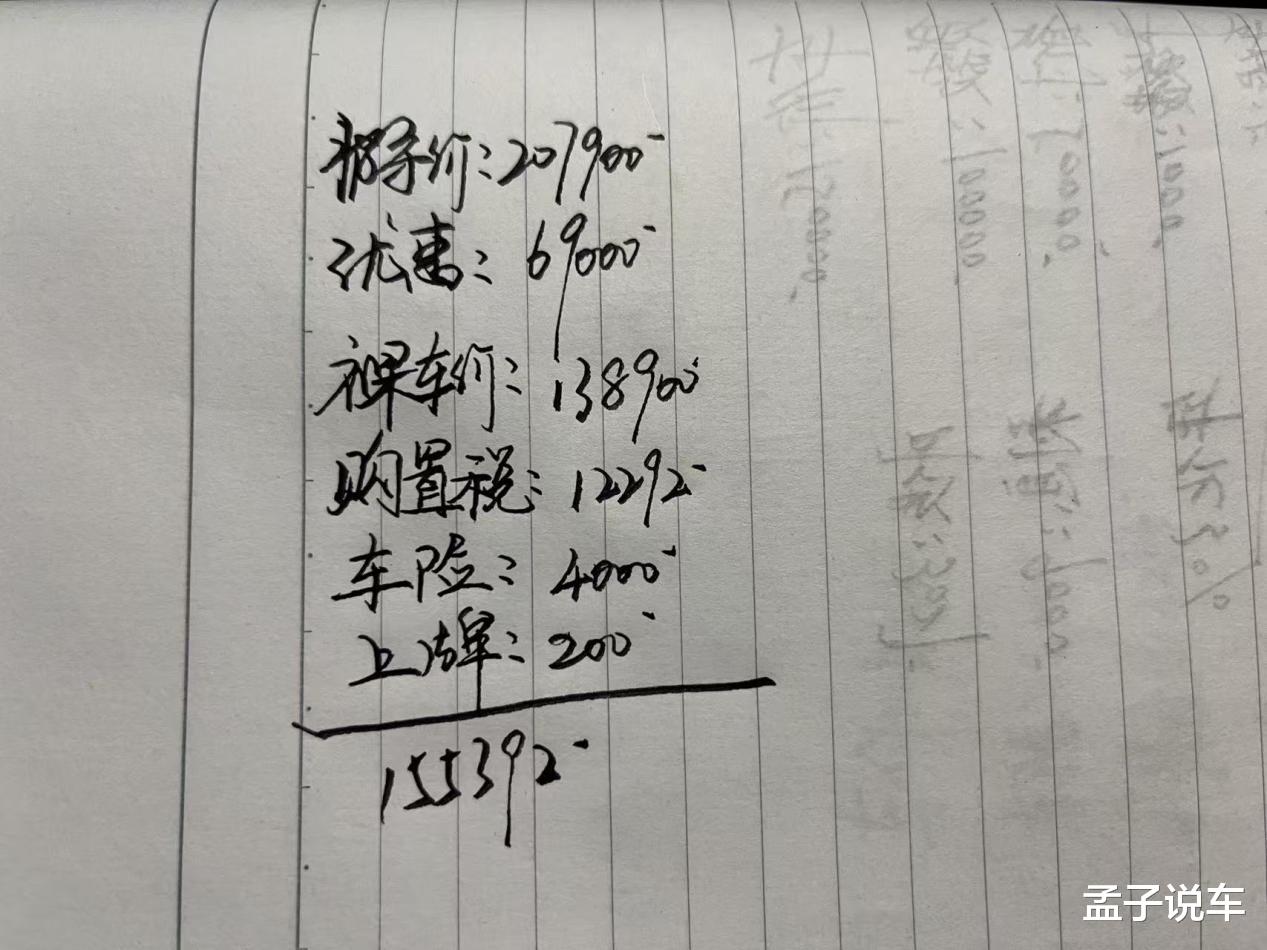 指导价:207900
优惠:69000
裸车价:138900
购置税:12292
车险:4000
上牌:200
155392
孟子说车